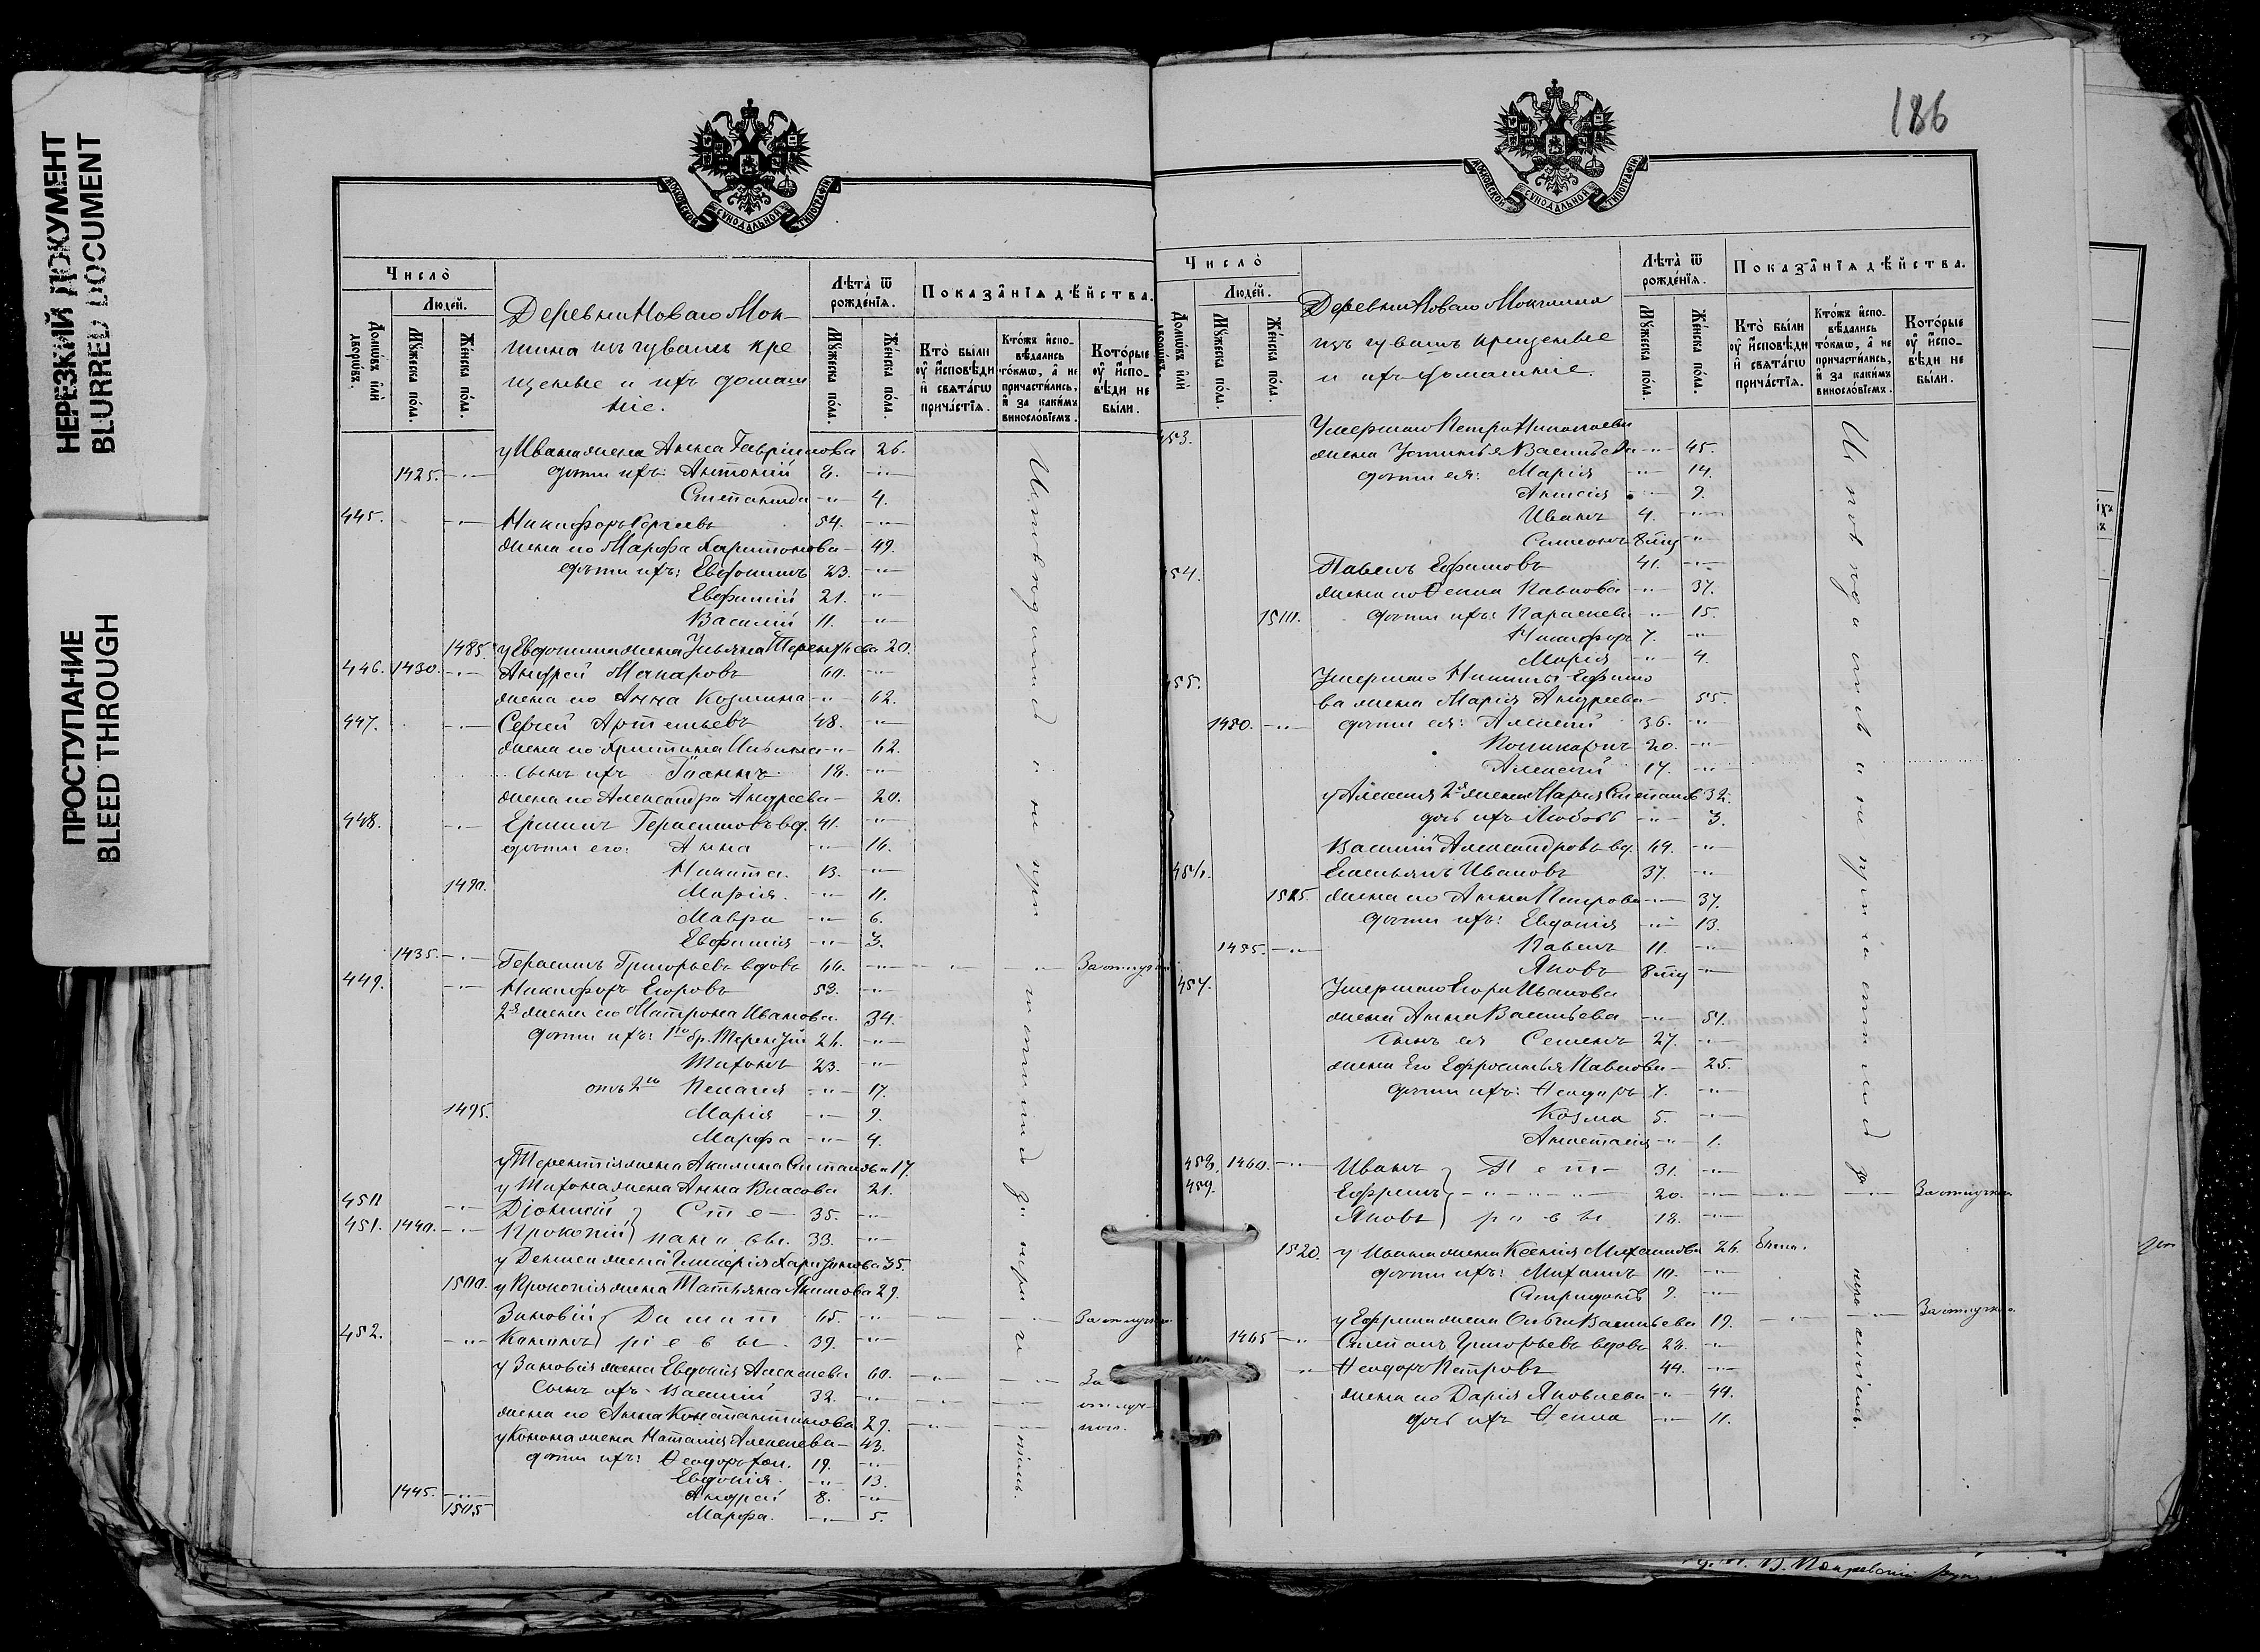 НЕРЕЗКИЙ ДОКУМЕНТ
BLURRED DOCUMENT
ПРОСТУПАНИЕ
BLEED THROUGH
МОСКОВСКОЙ СѴНОДАЛЬНОЙ ТИПОГРАФІИ
Число̀
Людей.
Домѡвъ и҆лѝ дворѡвъ.
Мꙋжеска по́ла.
Же́нска по́ла.
Деревни Новаго Мок-
шина изъ чувашъ кре
щеные и ихъ домаш
ніе.
Лѣта̀ ѿ рожде́нїѧ.
Мꙋжеска по́ла.
Же́нска по́ла.
Показа̂нїѧ дѣ́йства.
Кто̀ бы́ли ᲂу҆ и҆сповѣди и҆ свѧта́гѡ прича́стїѧ.
Кто́жъ и҆спо-вѣдались то́кмѡ, а҆ не причасти́лись, и҆ за каки́мъ винослό́віемъ.
Кото́рые ᲂу҆ и҆спо-вѣди не бы́ли.
у Ивана жена Анна Гавріилова 26.
1425. дѣти ихъ: Антоній 6.
Степанида 4.
445. Никифоръ Сергѣевъ 54.
жена его Марфа Харитонова 49.
дѣти ихъ: Евдокимъ 23.
Евфимій 21.
Василій 11.
1485. у Евдокима жена Ульяна Терентьева 20.
446. 1430. Андрей Макаровъ 60.
жена его Анна Козмина 62.
447. Сергій Артемьевъ 48.
жена его Христина Ильина 62.
сынъ ихъ Іоаннъ 18.
жена его Александра Андреева 20.
448. Ермилъ Герасимовъ вд. 41.
дѣти его: Анна 16.
Никита. 13.
1490. Марія. 11.
Мавра 6.
Евфимія 3.
1435. Герасимъ Григорьевъ вдовъ 66. За отлучкою
449. Никифоръ Егоровъ 53.
2я жена его Матрона Иванова. 34.
дѣти ихъ: 1го бр. Терентій 26.
Тихонъ 23.
отъ 2го Пелагея 17.
1495. Марія 9.
Марфа 4.
у Терентія жена Акилина Степанова 17.
у Тихона жена Анна Власова 21.
450 Діонисій } Сте- 35.
451. 1440. Прокопій } пановы. 33.
у Дениса жена Гликерія Харитонова 35.
1500. у Прокопія жена Татьяна Акимова 29.
Зиновій } Дамит 65. За отлучкою
452. Кононъ } ріевы. 39.
у Зиновія жена Евдокія Алексеева 60. За
сынъ ихъ Василій 32. отлуч-
жена его Анна Константинова 29. кою.
у Конона жена Наталія Алексеева 43.
дѣти ихъ: Ѳеодоръ хол. 19.
Евдокія. 13.
1445. Андрей 8.
1505 Марфа. 5.
Исповѣдались и не причастились за нерачительствомъ.
186
МОСКОВСКОЙ СѴНОДАЛЬНОЙ ТИПОГРАФІИ
Число̀
Людей.
Домѡвъ и҆лѝ дворѡвъ.
Мꙋжеска по́ла.
Же́нска по́ла.
Деревни Новаго Мокшина
изъ чувашъ крещеные
и ихъ домашніе.
Лѣта̀ ѿ рожде́нїѧ.
Мꙋжеска по́ла.
Же́нска по́ла.
Показа̂нїѧ дѣ́йства.
Кто̀ бы́ли ᲂу҆ и҆сповѣди и҆ свѧта́гѡ прича́стїѧ.
Кто́жъ и҆спо-вѣдались то́кмѡ, а҆ не причасти́лись, и҆ за каки́мъ винослό́віемъ.
Кото́рые ᲂу҆ и҆спо-вѣди не бы́ли.
453. Умершаго Петра Николаева
жена Устинья Васильева 45.
дѣти ея: Марія 14.
Анисія 9.
Иванъ 4.
Симеонъ 8 мц
454. Павелъ Ефимовъ 41.
жена его Ѳекла Павлова 37.
1510. дѣти ихъ: Параскева 15.
Никифоръ 7.
Марія 4.
455. Умершаго Никиты Ефимо
ва жена Марія Андреева 55.
1450. дѣти ея: Алексій 36.
Поликарпъ 20.
Алексій 17.
у Алексія 2я жена Марія Степанов 32.
дочь ихъ Любовь 3.
Василій Александровъ вд. 69.
456. Емельянъ Ивановъ 37.
1515. жена его Анна Петрова 37.
дѣти ихъ: Евдокія 13.
1455. Павелъ 11.
Яковъ 8 мц
457. Умершаго Егора Иванова
жена Анна Васильева 51.
сынъ ея Семенъ 27.
жена его Ефросинья Павлова 25.
дѣти ихъ: Ѳеодоръ 7.
Козма 5.
Анастасія 1.
458. 1460. Иванъ } Пет- 31.
459. Ефремъ } 20. За отлучкою
Яковъ } ровы 18.
1520. у Ивана жена Ксенія Михаилова 26. Была.
дѣти ихъ: Михаилъ 10.
Спиридонъ 9.
у Ефрема жена Ольга Васильева 19. За отлучкою.
1465 Степанъ Григорьевъ вдовъ 28.
Ѳеодоръ Петровъ 44.
жена его Дарія Яковлева 49.
дочь ихъ Ѳекла 11.
Исповѣдались и не причастились за